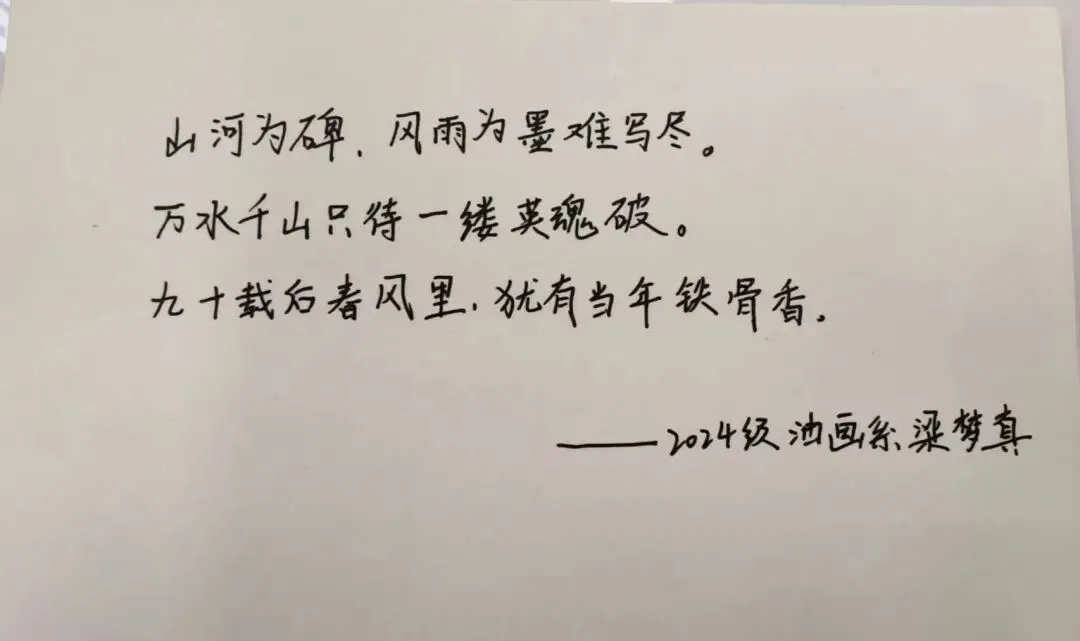 山河为碑，风雨为墨难写尽。
万水千山只待一缕英魂破。
九十载后春风里，犹有当年铁骨香。
——2024级油画系梁梦真